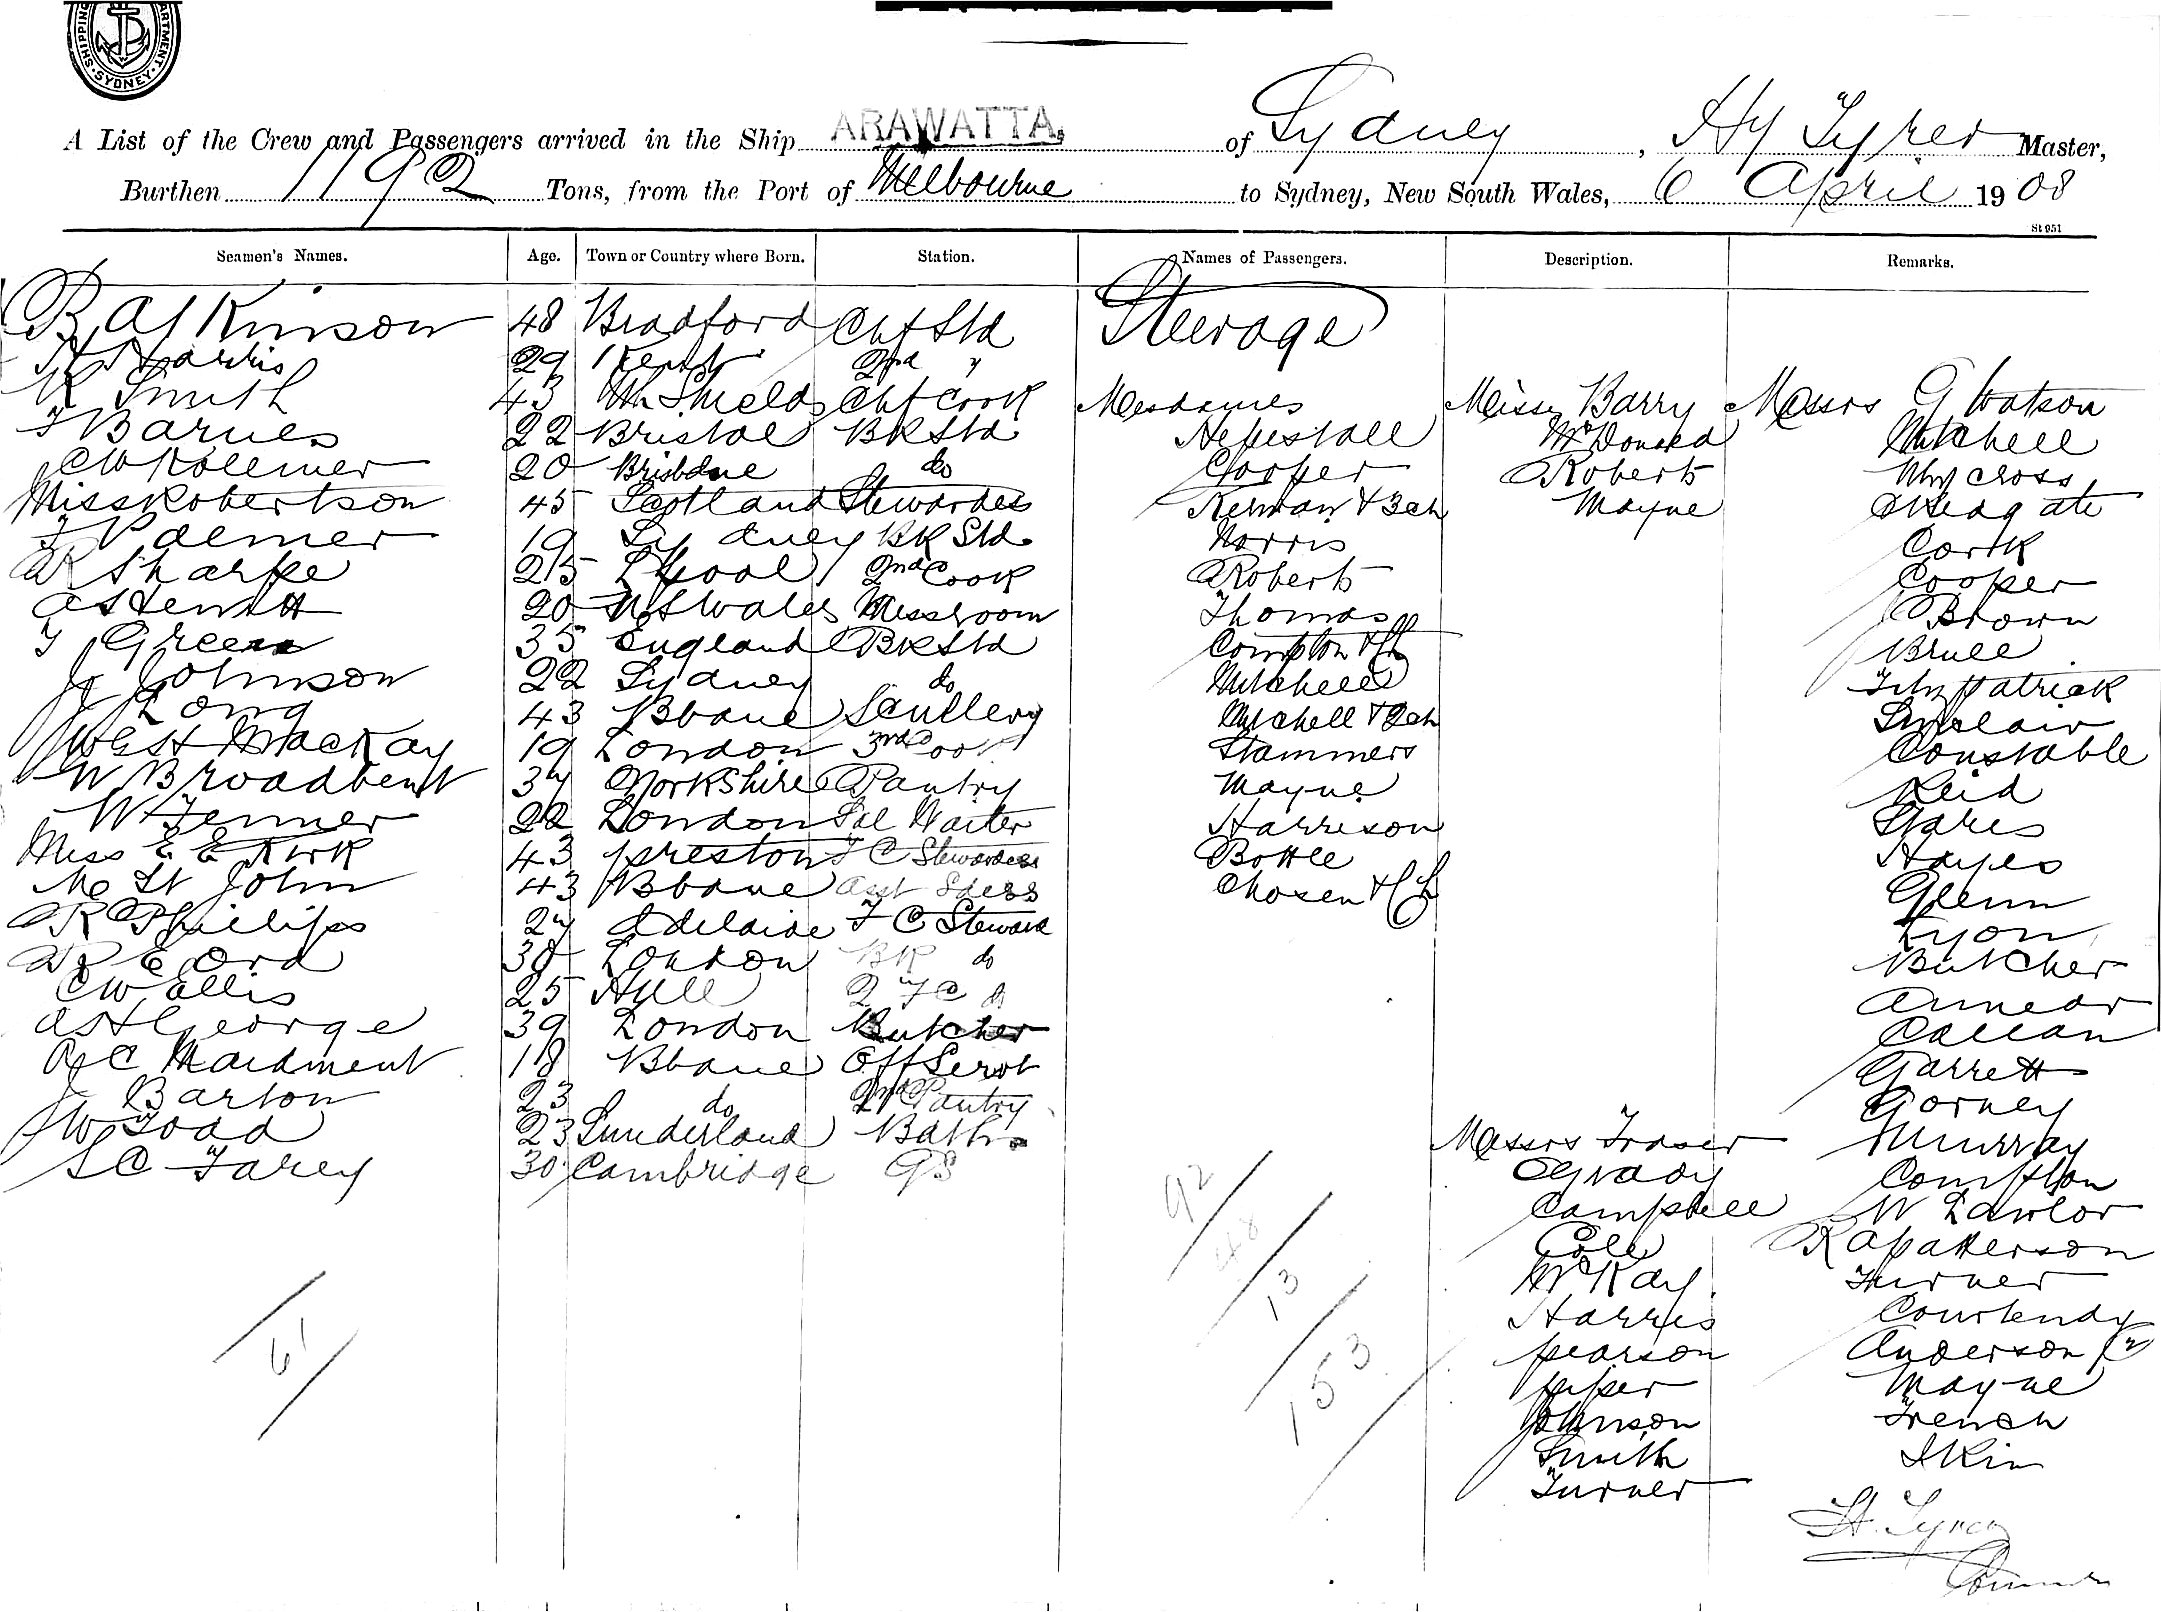 SHIPPING DEPARTMENT SYDNEY
A List of the Crew and Passengers arrived in the Ship ARAWATTA, of Sydney, Hy Tyrer Master,
Burthen 1192 Tons, from the Port of Melbourne to Sydney, New South Wales, 6 April 1908
St 951
Seamen's Names. Age. Town or Country where Born. Station. Names of Passengers. Description. Remarks.
B Atkinson 48 Bradford Chf Std Steerage
H Harris 29 Kent 2nd "
R Smith 43 Nth Shields Chf Cook Mesdames Misses Barry Messrs G Watson
F Barnes 22 Bristol BR Std Heptstall McDonald Mitchell
CW Kollmer 20 Brisbane do Cooper Roberts Whycross
Miss Robertson 45 Scotland Stewardess Kernan & 3 ch Mayne Skeagate
F Palmer 19 Sydney BR Std Norris Cork
R Sharpe 25 L'pool 2nd Cook Roberts Cooper
20 N S Wales Messroom Thomas Brown
F Green 35 England BR Std Compton & Ch
J Johnson 22 Sydney do Mitchell Fitzpatrick
J Long 43 Bbane Scullery Mitchell & 2 ch Sinclair
West Mackay 19 London 3rd Cook Stammers Constable
W Broadbent 34 Yorkshire Pantry Mayne Reid
W Jenner 22 London Sal Waiter Harrison Stares
Miss E E Kirk 43 Preston F C Stewardess Bottle Hayes
Mc St John 43 Bbane Asst Sdess Chosen & Ch Glenn
R Phillips 27 Adelaide F C Steward Lyon
R E Ord 38 London BR do Butcher
CW Ellis 25 Hull 2nd F C do Annear
A H George 39 London Butcher Callan
A C Maidment 18 Bbane Off Servt Garrett
J Barton 23 do 2nd Pantry Gorney
J W Todd 23 Sunderland Baths Messrs Fraser Murray
S C Farey 30 Cambridge GS Grady Compton
Campbell W Lawlor
92
48
Cole R A Patterson
13
McKay Turner
61
Harris Courtenay
153
Pearson Anderson
Piper Mayne
Johnson French
Smith Skin
Turner
H. Tyrer